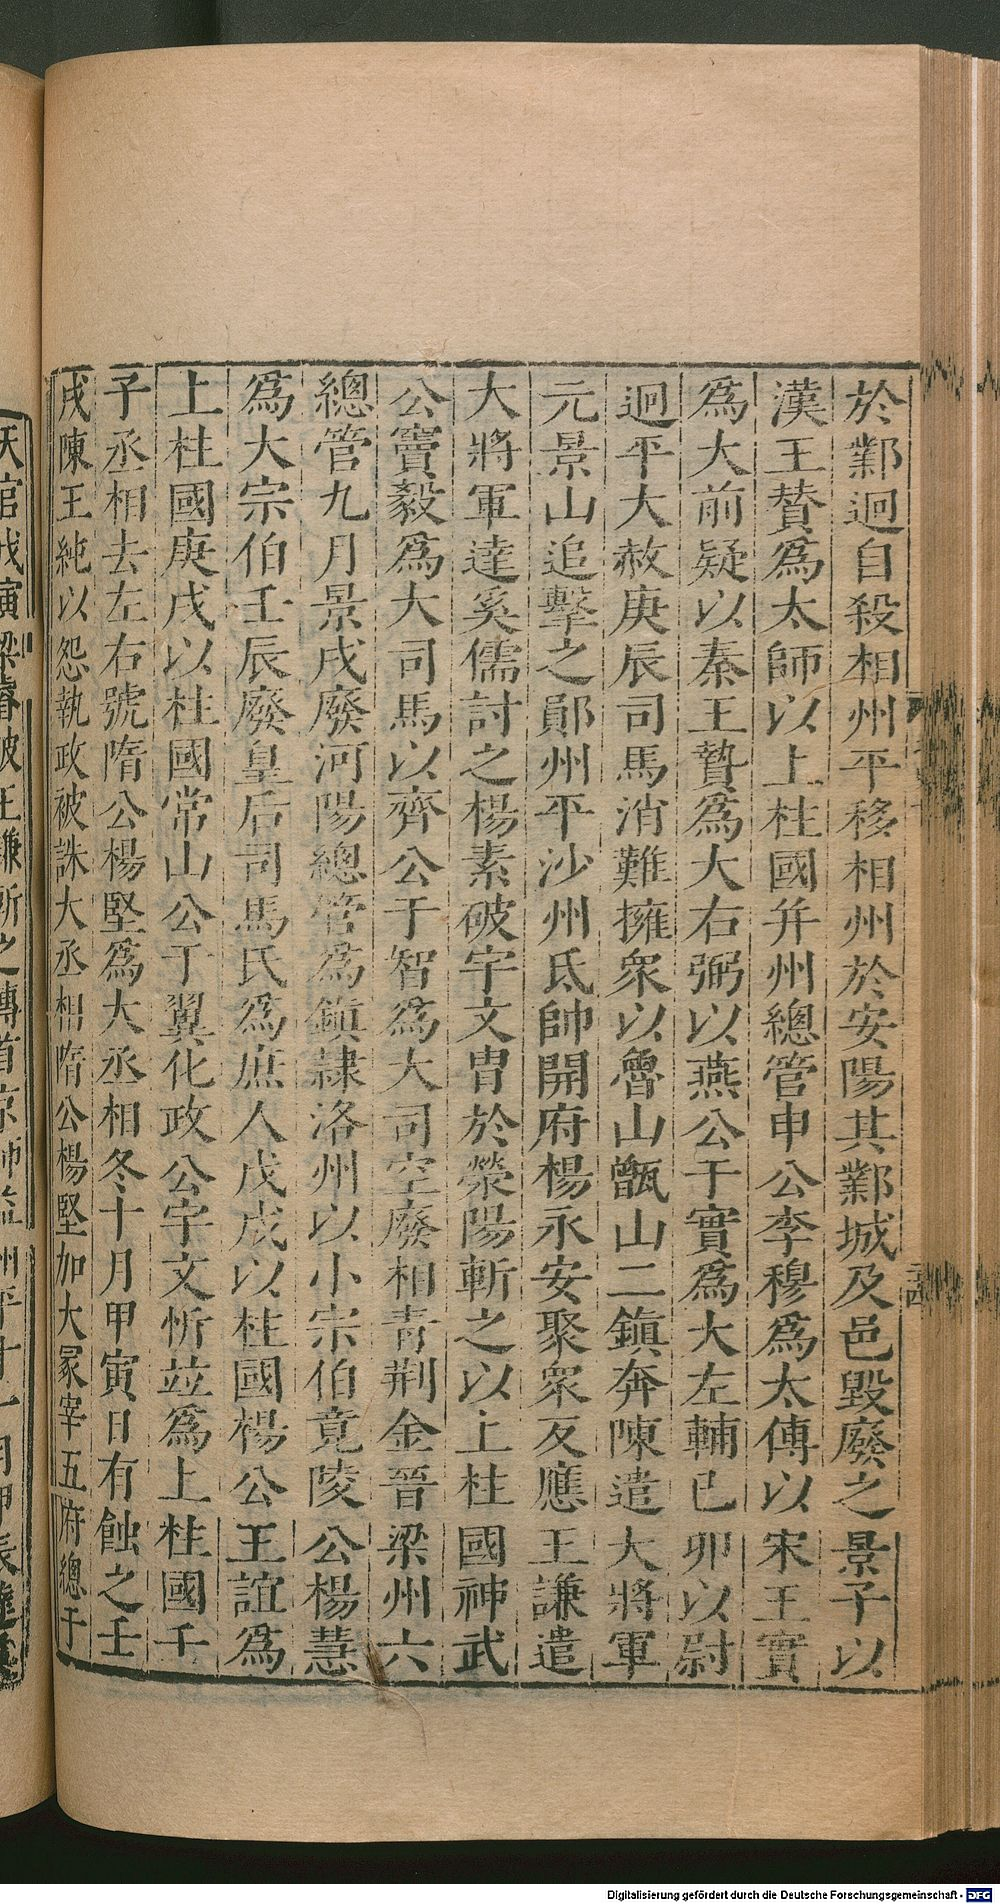 於鄴迥自殺相州平移相州於安陽其鄴城及邑毀廢之景子以
漢王贊爲太師以上柱國并州總管申公李穆爲太傅以宋王實
爲大前疑以秦王贄爲大右弼以燕公于寔爲大左輔己卯以尉
迥平大赦庚辰司馬消難擁衆以魯山甑山二鎮奔陳遣大將軍
元景山追擊之鄖州平沙州氐帥開府楊永安聚衆反應王謙遣
大將軍達奚儒討之楊素破宇文胄於滎陽斬之以上柱國神武
公竇毅爲大司馬以齊公于智爲大司空廢相青荆金晉梁州六
總管九月景戌廢河陽總管爲鎮隷洛州以小宗伯竟陵公楊慧
爲大宗伯壬辰廢皇后司馬氏爲庶人戊戌以柱國楊公王誼爲
上柱國庚戌以柱國常山公于翼化政公宇文忻竝爲上柱國壬
子丞相去左右號隋公楊堅爲大丞相冬十月甲寅日有蝕之壬
戌陳王純以怨執政被誅大丞相隋公楊堅加大冢宰五府總于
Digitalisierung gefördert durch die Deutsche Forschungsgemeinschaft - DFG